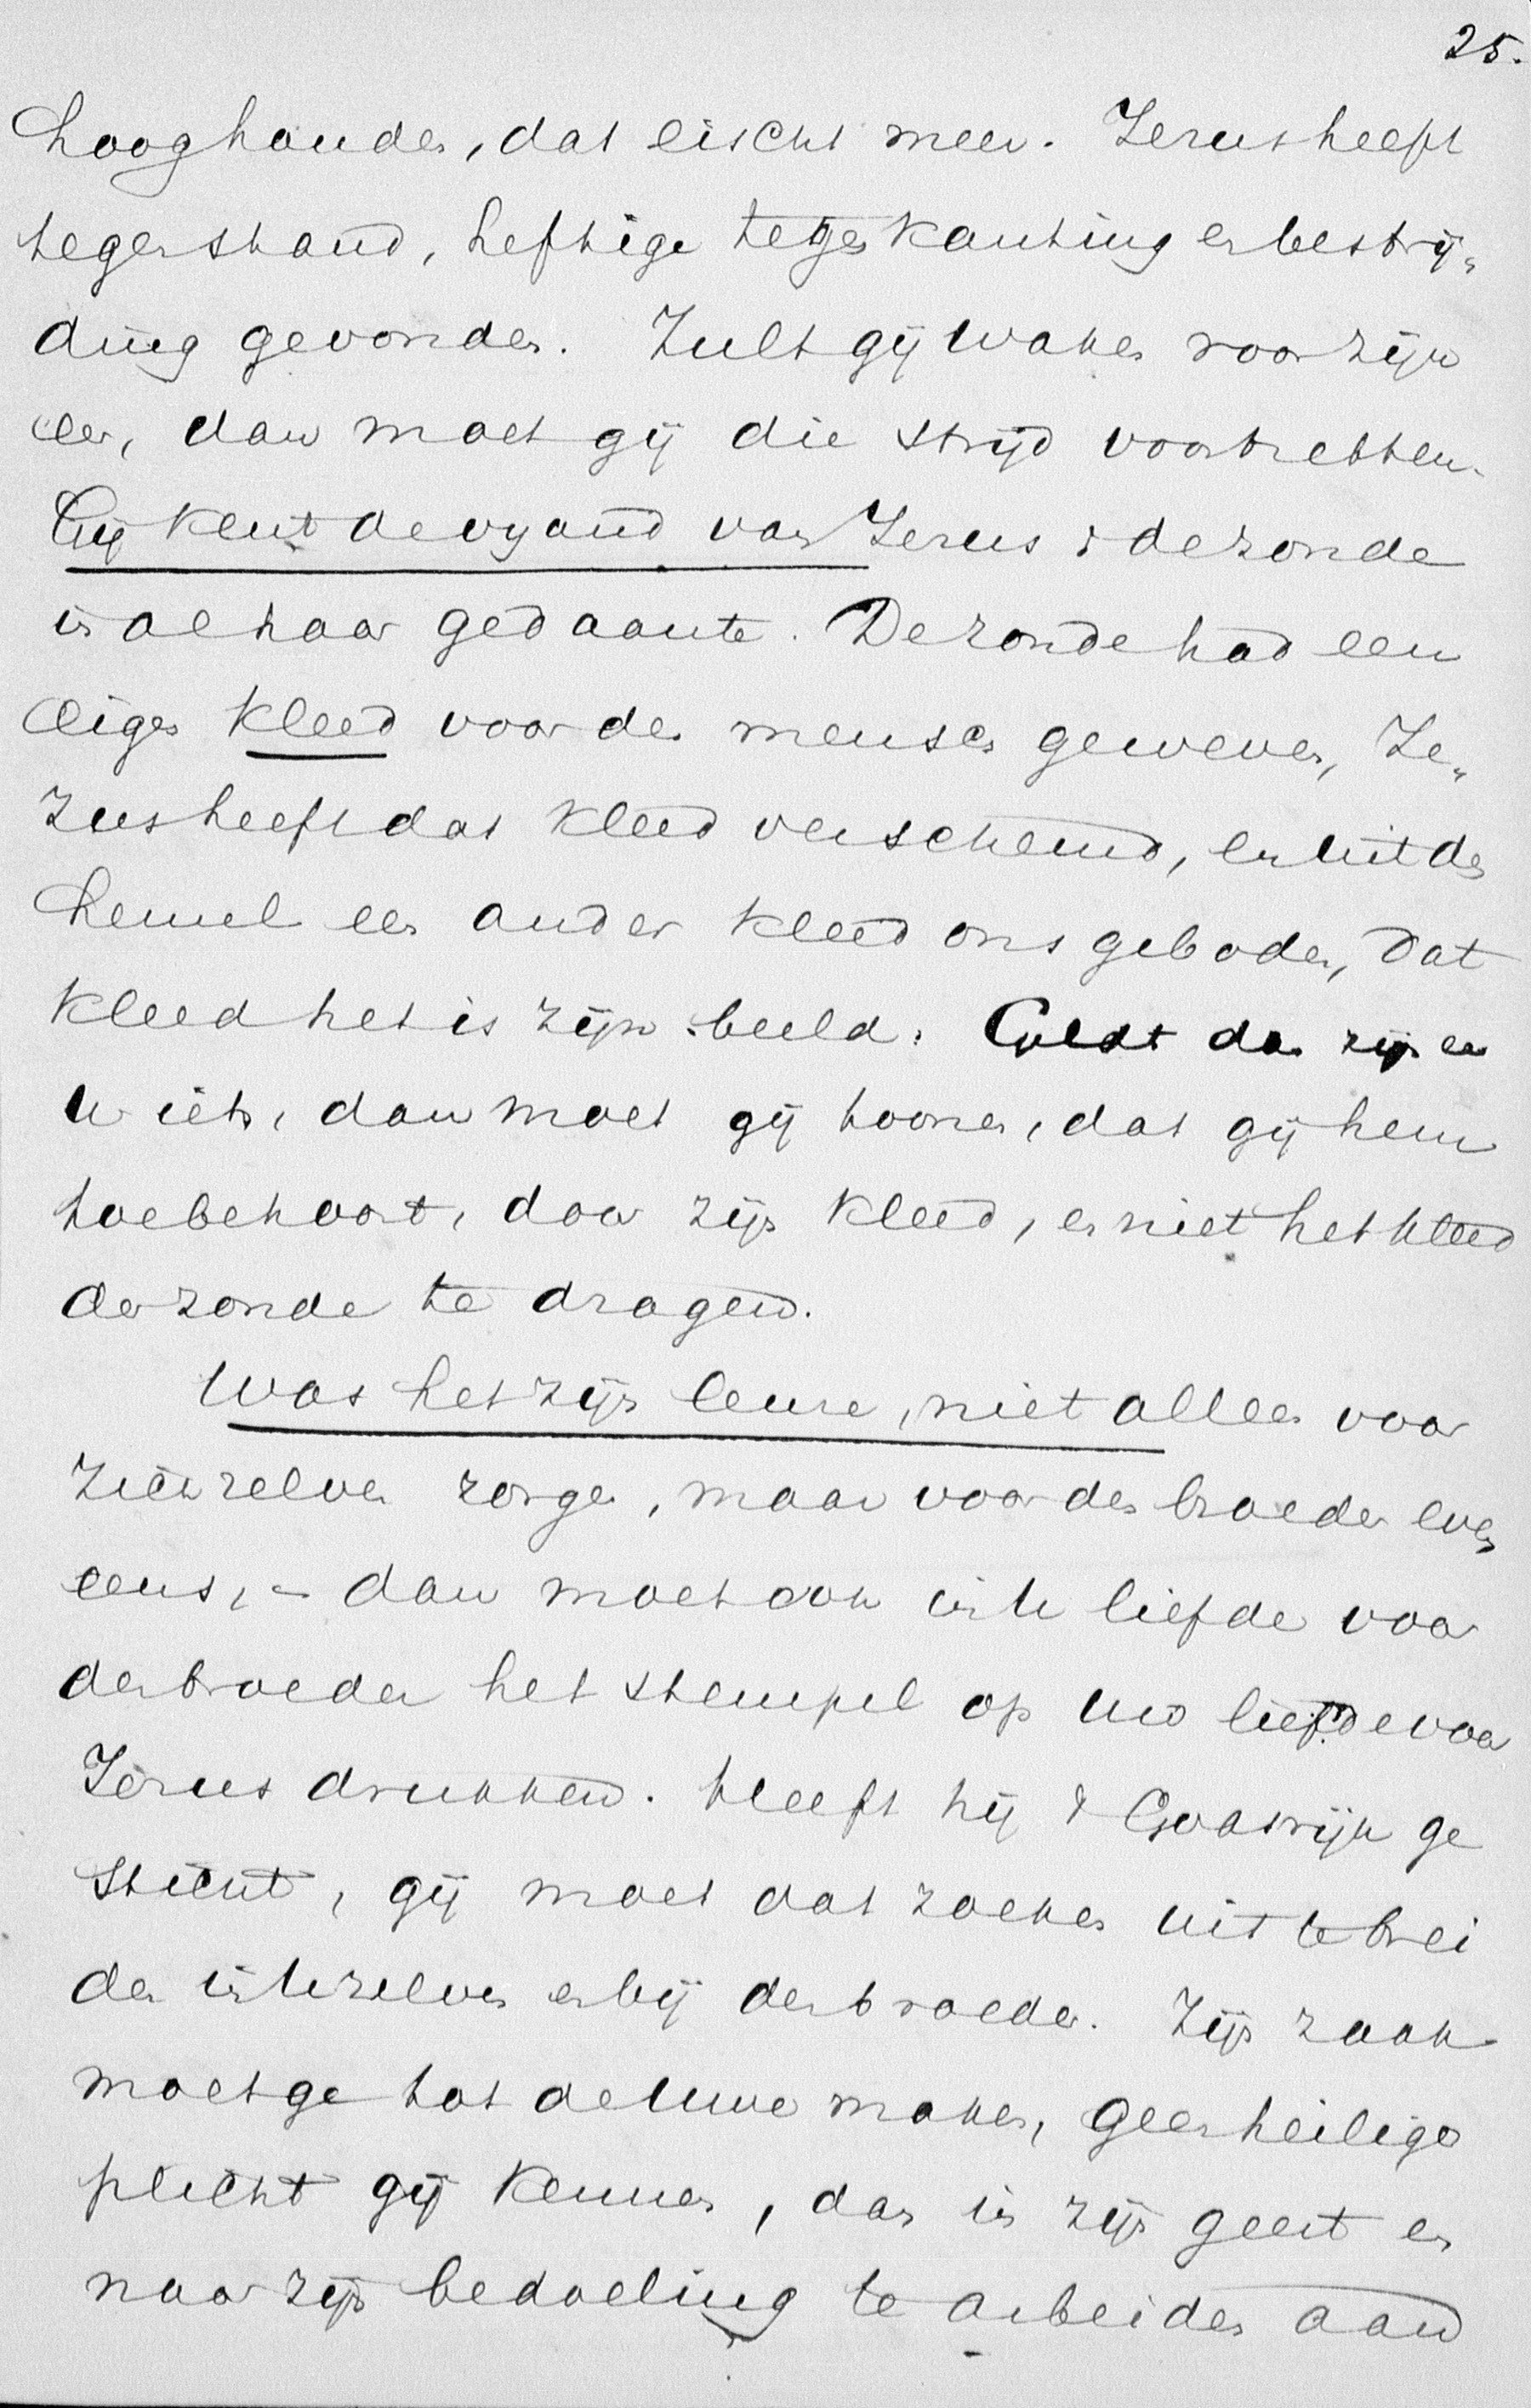 25.
hooghouden, dat eischt meer. Jezus heeft
tegenstand, heftige tegenkanting en bestrij-
ding gevonden. Zult gij waken voor zijn
eer, dan moet gij die strijd voortzetten.
Gij kent de vijand van Jezus: de zonde
in al haar gedaante. De zonde had een
eigen kleed voor den mensch geweven, Je-
zus heeft dat kleed verscheurd, en uit den
hemel een ander kleed ons geboden, dat
kleed het is zijn beeld. Geldt dan zijn eer
U iets, dan moet gij toonen, dat gij hem
toebehoort, door zijn kleed, en niet het kleed
der zonde te dragen.
Was het zijn leuze, niet alleen voor
zichzelven zorgen, maar voor den broeder even
eens, - dan moet ook in U liefde voor
den broeder het stempel op uw liefde voor
Jezus drukken. Heeft hij 't Godsrijk ge
sticht, gij moet dat zoeken uit te brei
den in Uzelven en bij den broeder. Zijn zaak
moet ge tot de Uwe maken, geen heiliger
plicht gij kennen, dan in zijn geest en
naar zijn bedoeling te arbeiden aan